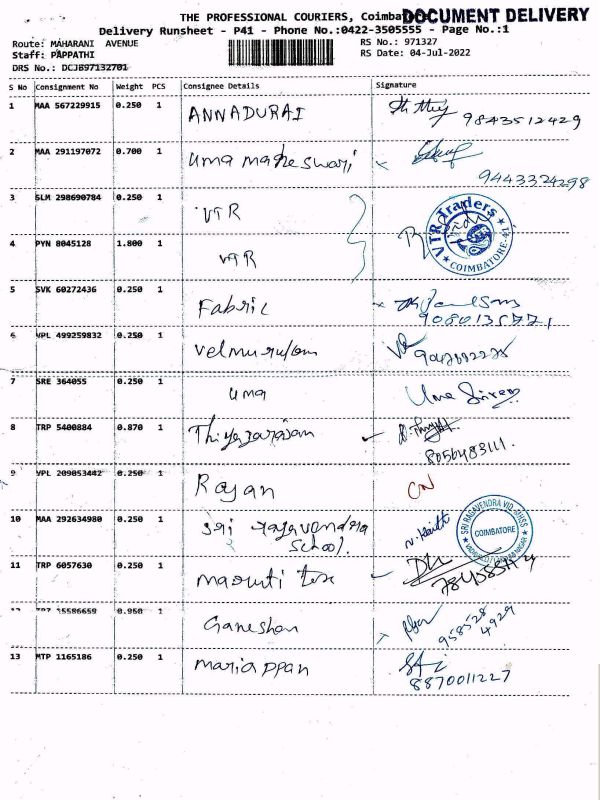 THE PROFESSIONAL COURIERS, Coimbatore
DOCUMENT DELIVERY
Delivery Runsheet - P41 - Phone No.:0422-3505555 - Page No.:1
Route: MAHARANI AVENUE
RS No.: 971327
Staff: PAPPATHI
RS Date: 04-Jul-2022
DRS No.: DCJB97132701
S No Consignment No Weight PCS Consignee Details Signature
1 MAA 567229915 0.250 1 ANNADURAI 9843512429
2 MAA 291197072 0.700 1 uma maheswari 9443324298
3 SLM 298690784 0.250 1 VTR
VTR Traders COIMBATORE
4 PYN 8045128 1.800 1 VTR
5 SVK 60272436 0.250 1 Fabric
6 VPL 499259832 0.250 1 velmurugan
7 SRE 364055 0.250 1 uma
8 TRP 5400884 0.870 1 Thiyagarajan
8056483111.
9 VPL 209053442 0.250 1 Rajan
10 MAA 292634980 0.250 1 Sri ragavendra
School.
SRI RAGAVENDRA VID COIMBATORE
11 TRP 6057630 0.250 1 maruti
0.950 1 Ganeshan
958528
4929
13 MTP 1165186 0.250 1 mariappan
8870011227